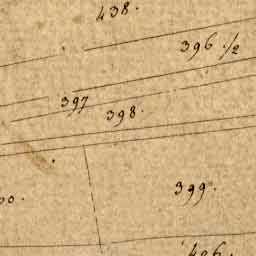 438.
396 ./2
397
398.
399.
00.
406.